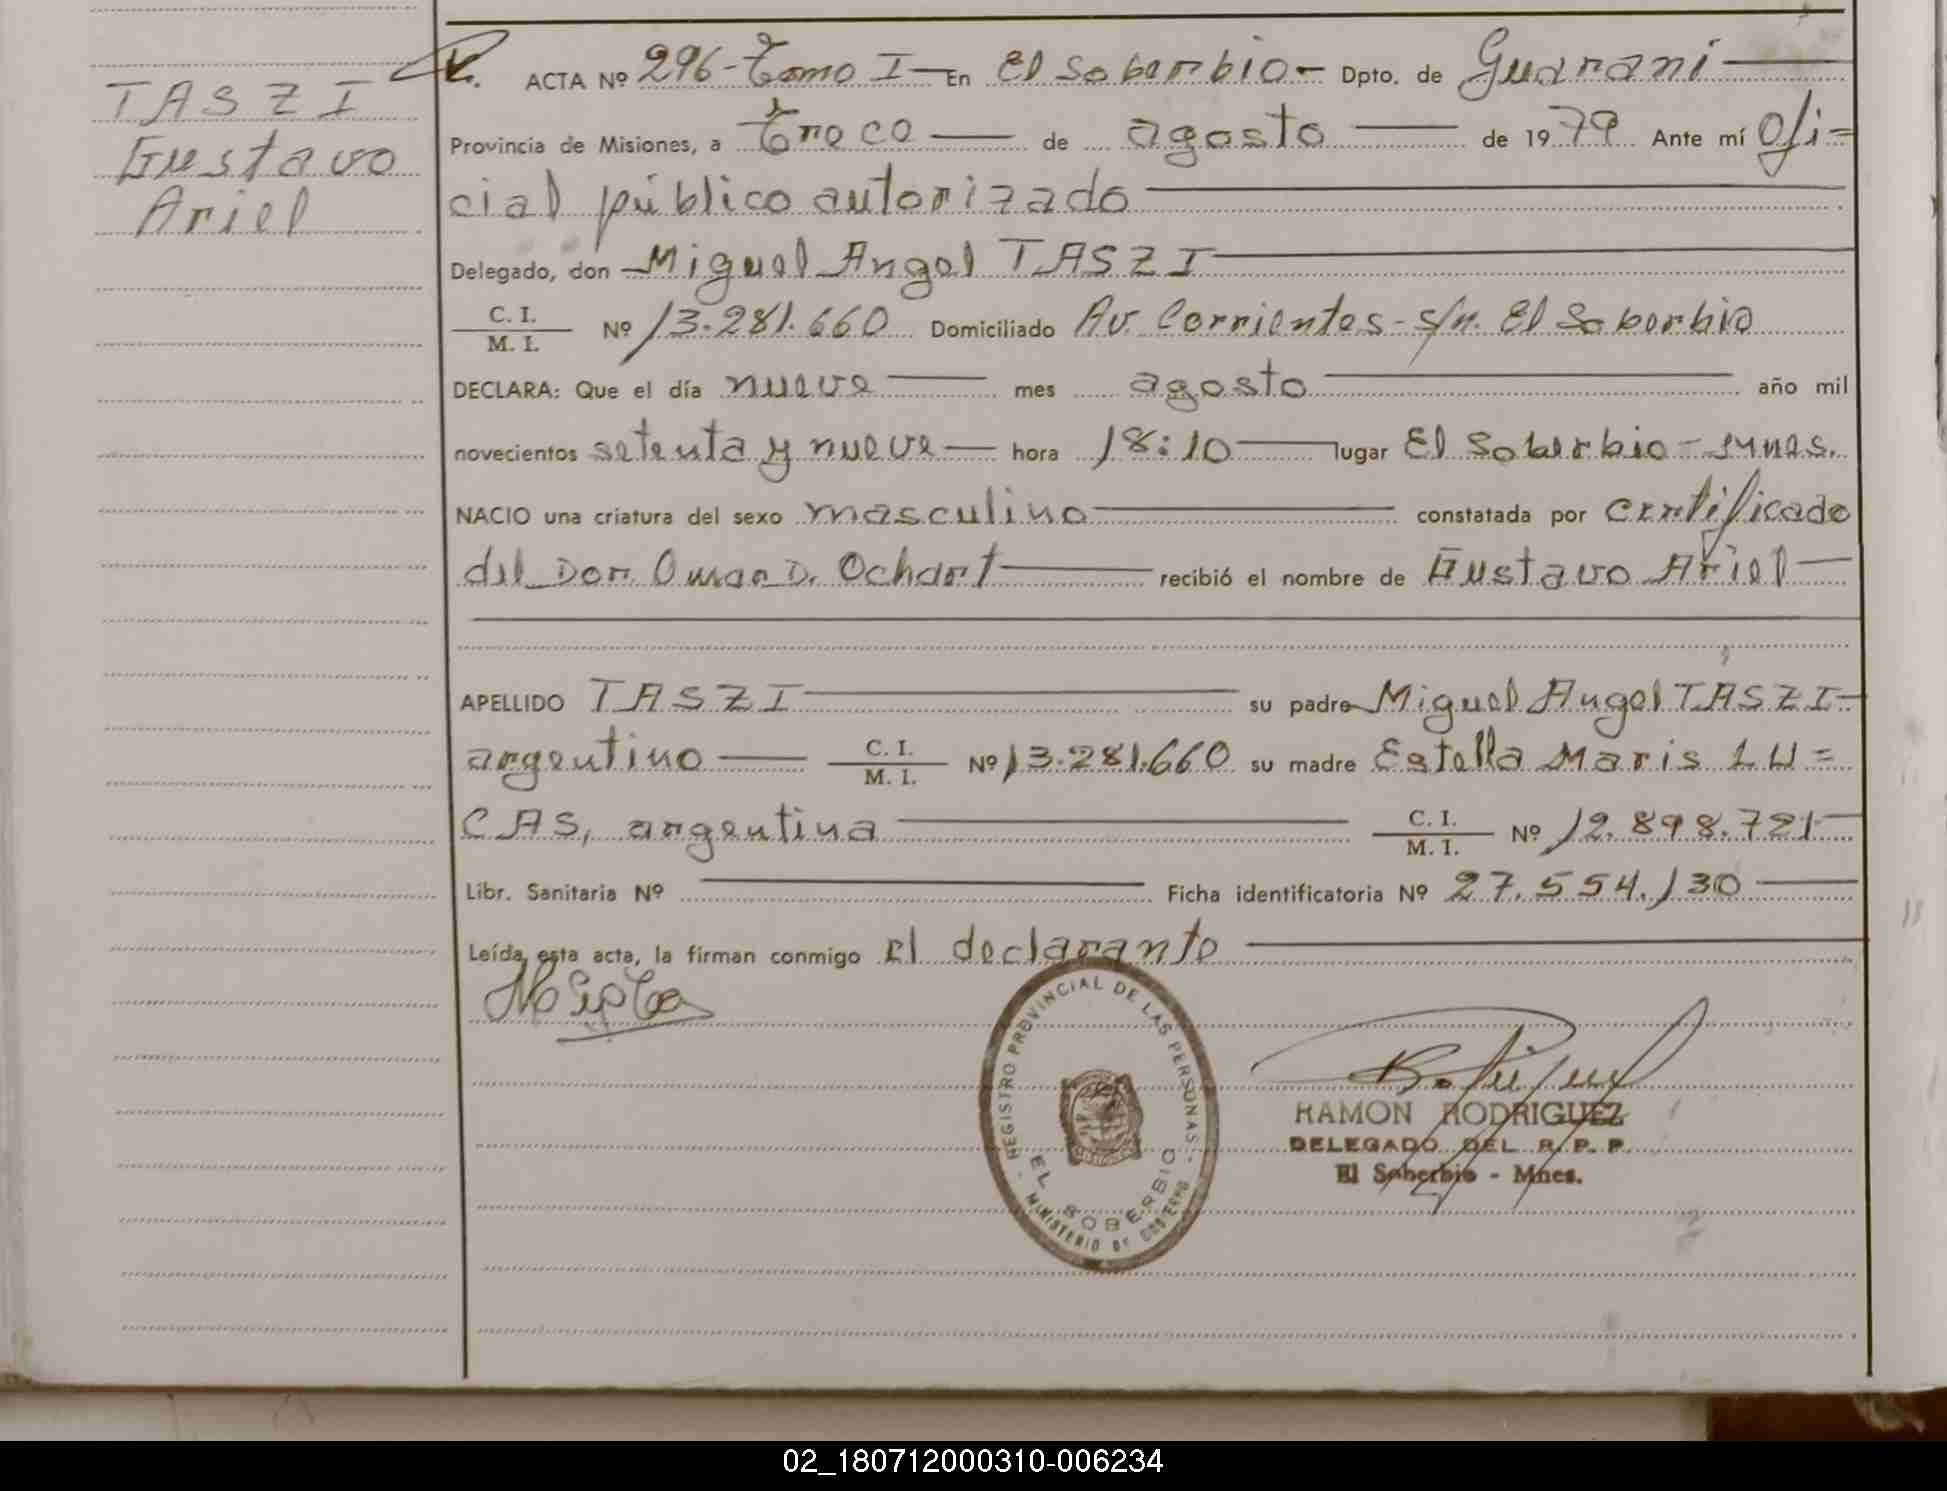 TASZI
Gustavo
Ariel
ACTA Nº 296-Tomo I - En El Soberbio - Dpto. de Guarani
Provincia de Misiones, a Trece de agosto de 1979 Ante mí Ofi=
cial público autorizado
Delegado, don Miguel Angel TASZI
C. I.
M. I. Nº 13.281.660 Domiciliado Av. Corrientes - s/n. El Soberbio
DECLARA: Que el día nueve mes agosto año mil
novecientos setenta y nueve hora 18:10 lugar El Soberbio - Mnes.
NACIO una criatura del sexo masculino constatada por certificado
del Dor. Omar D. Ochart recibió el nombre de Gustavo Ariel
APELLIDO TASZI su padre Miguel Angel TASZI
argentino C. I.
M. I. Nº 13.281.660 su madre Estella Maris LU=
CAS, argentina C. I.
M. I. Nº 12.898.721
Libr. Sanitaria Nº Ficha identificatoria Nº 27.554.130
Leída esta acta, la firman conmigo el declarante
REGISTRO PROVINCIAL DE LAS PERSONAS
EL SOBERBIO
MINISTERIO DE GOBIERNO
RAMON RODRIGUEZ
DELEGADO DEL R. P. P.
El Soberbio - Mnes.
02_180712000310-006234